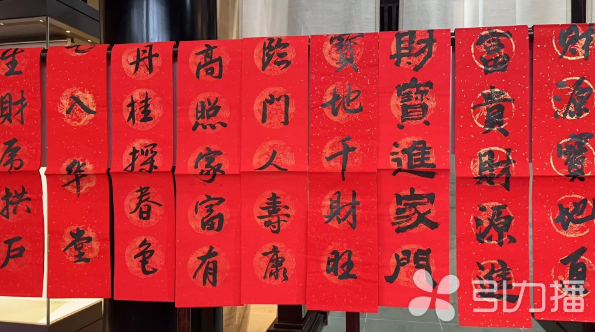 財源寶地百
富貴財源進
財寶進家門
寶地千財旺
臨門人壽康
高照家富有
丹桂探春色
入华堂
生財拱戶
引力播